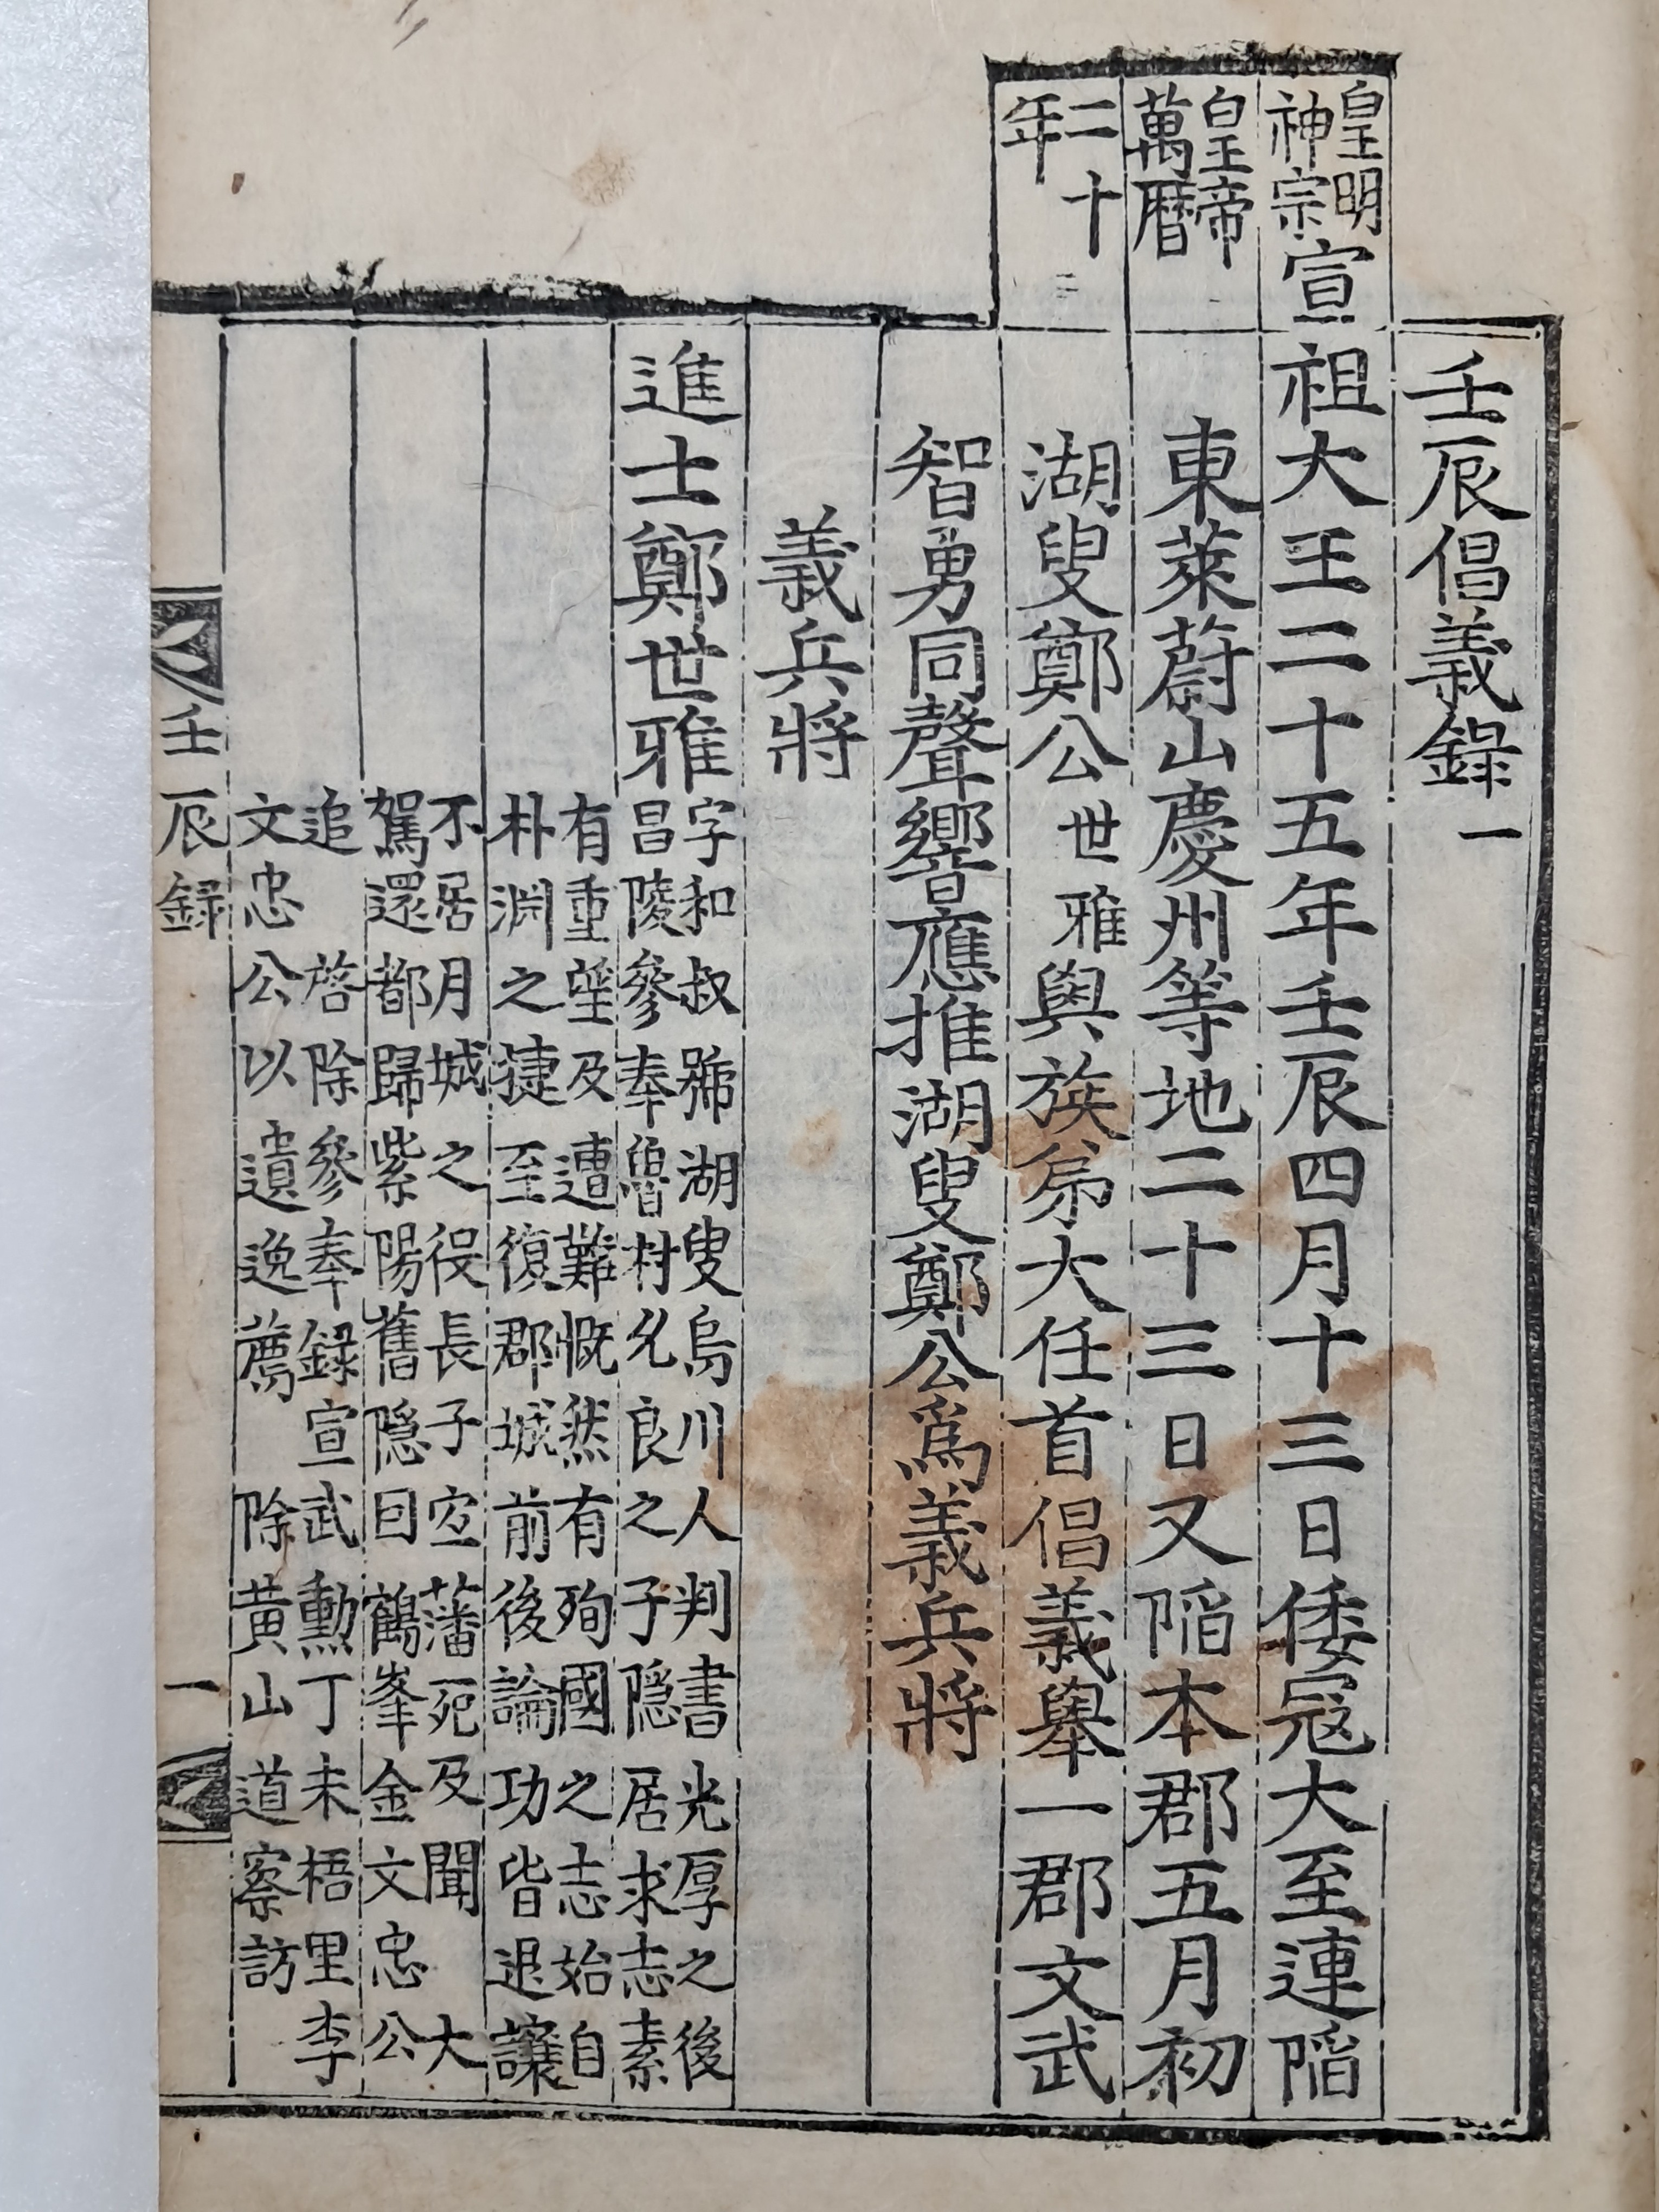 壬辰倡義錄一
皇明
神宗
宣祖大王二十五年壬辰四月十三日倭寇大至連陷
皇帝
萬曆
東萊蔚山慶州等地二十三日又陷本郡五月初
二十
年
湖叟鄭公世雅與族弟大任首倡義擧一郡文武
智勇同聲響應推湖叟鄭公爲義兵將
義兵將
進士鄭世雅
字和叔號湖叟烏川人判書光厚之後
昌陵參奉魯村允良之子隱居求志素
有重望及遭難慨然有殉國之志始自
朴淵之捷至復郡城前後論功皆退讓
不居月城之役長子宜藩死及聞 大
駕還都歸紫陽舊隱因鶴峯金文忠公
追 啓除參奉錄宣武勳丁未梧里李
文忠公以遺逸薦 除黃山道察訪
壬辰録 一